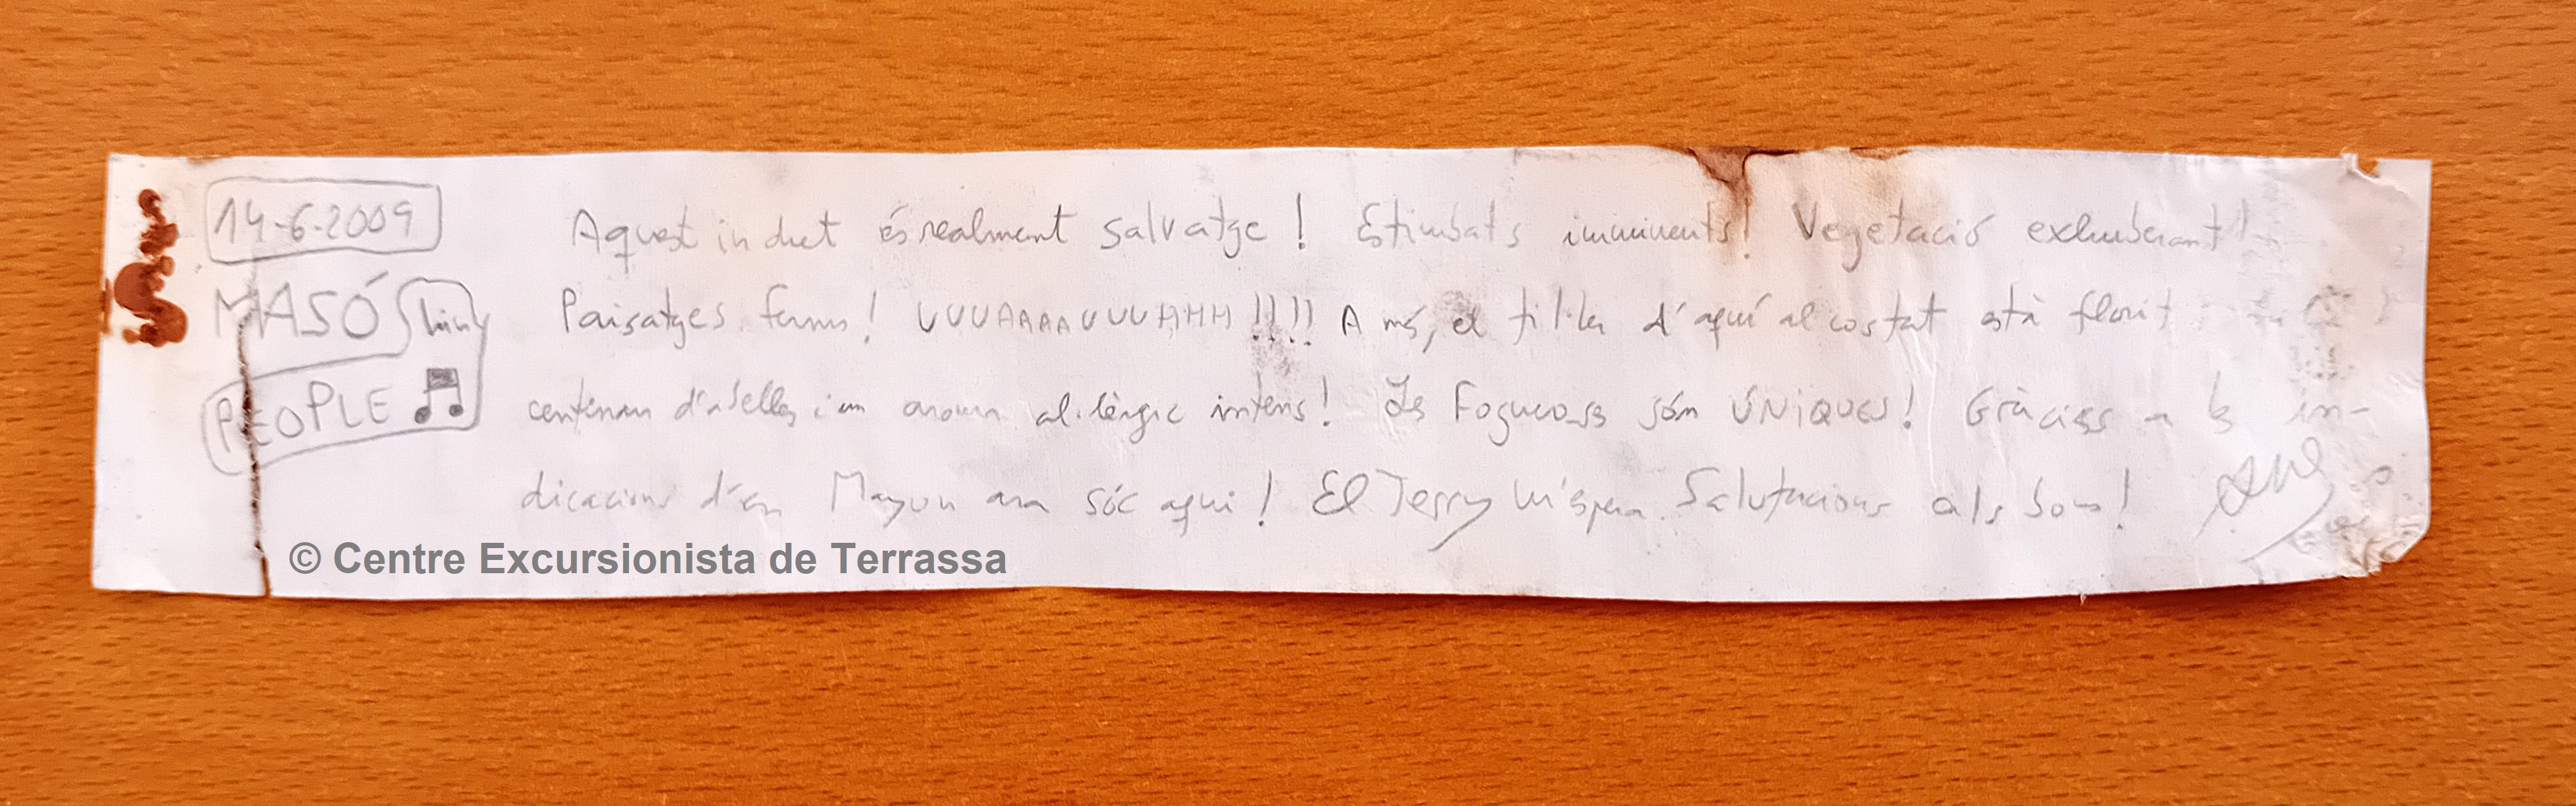 14-6-2009
MASÓ Shiny
PEOPLE
Aquest indret és realment salvatge! Estimbats imminents! Vegetació exhuberant!
Paisatges ferms! UUUAAAAUUUAHH!!!! A més, el til·ler d'aquí al costat està florit
centenars d'abelles i un aroma al·lèrgic intens! Les Fogueroses són ÚNIQUES! Gràcies a les in-
dicacions d'en ara sóc aquí! El Terry m'espera. Salutacions als bons!
© Centre Excursionista de Terrassa